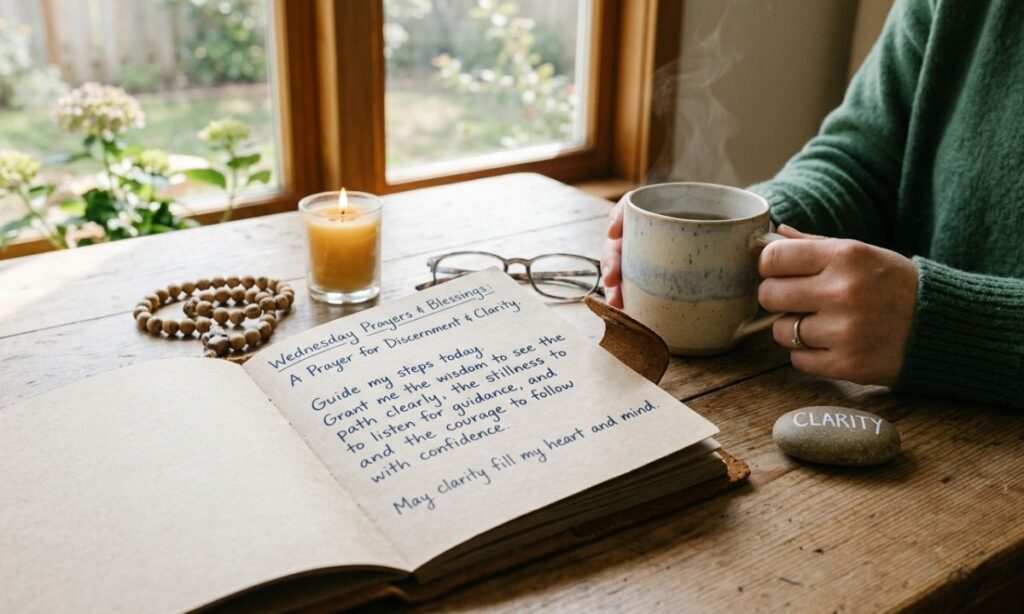 Wednesday Prayers & Blessings:
A Prayer for Discernment & Clarity
Guide my steps today.
Grant me the wisdom to see the
path clearly, the stillness to
to listen for guidance, and
and the courage to follow
with confidence.
May clarity fill my heart and mind.
CLARITY